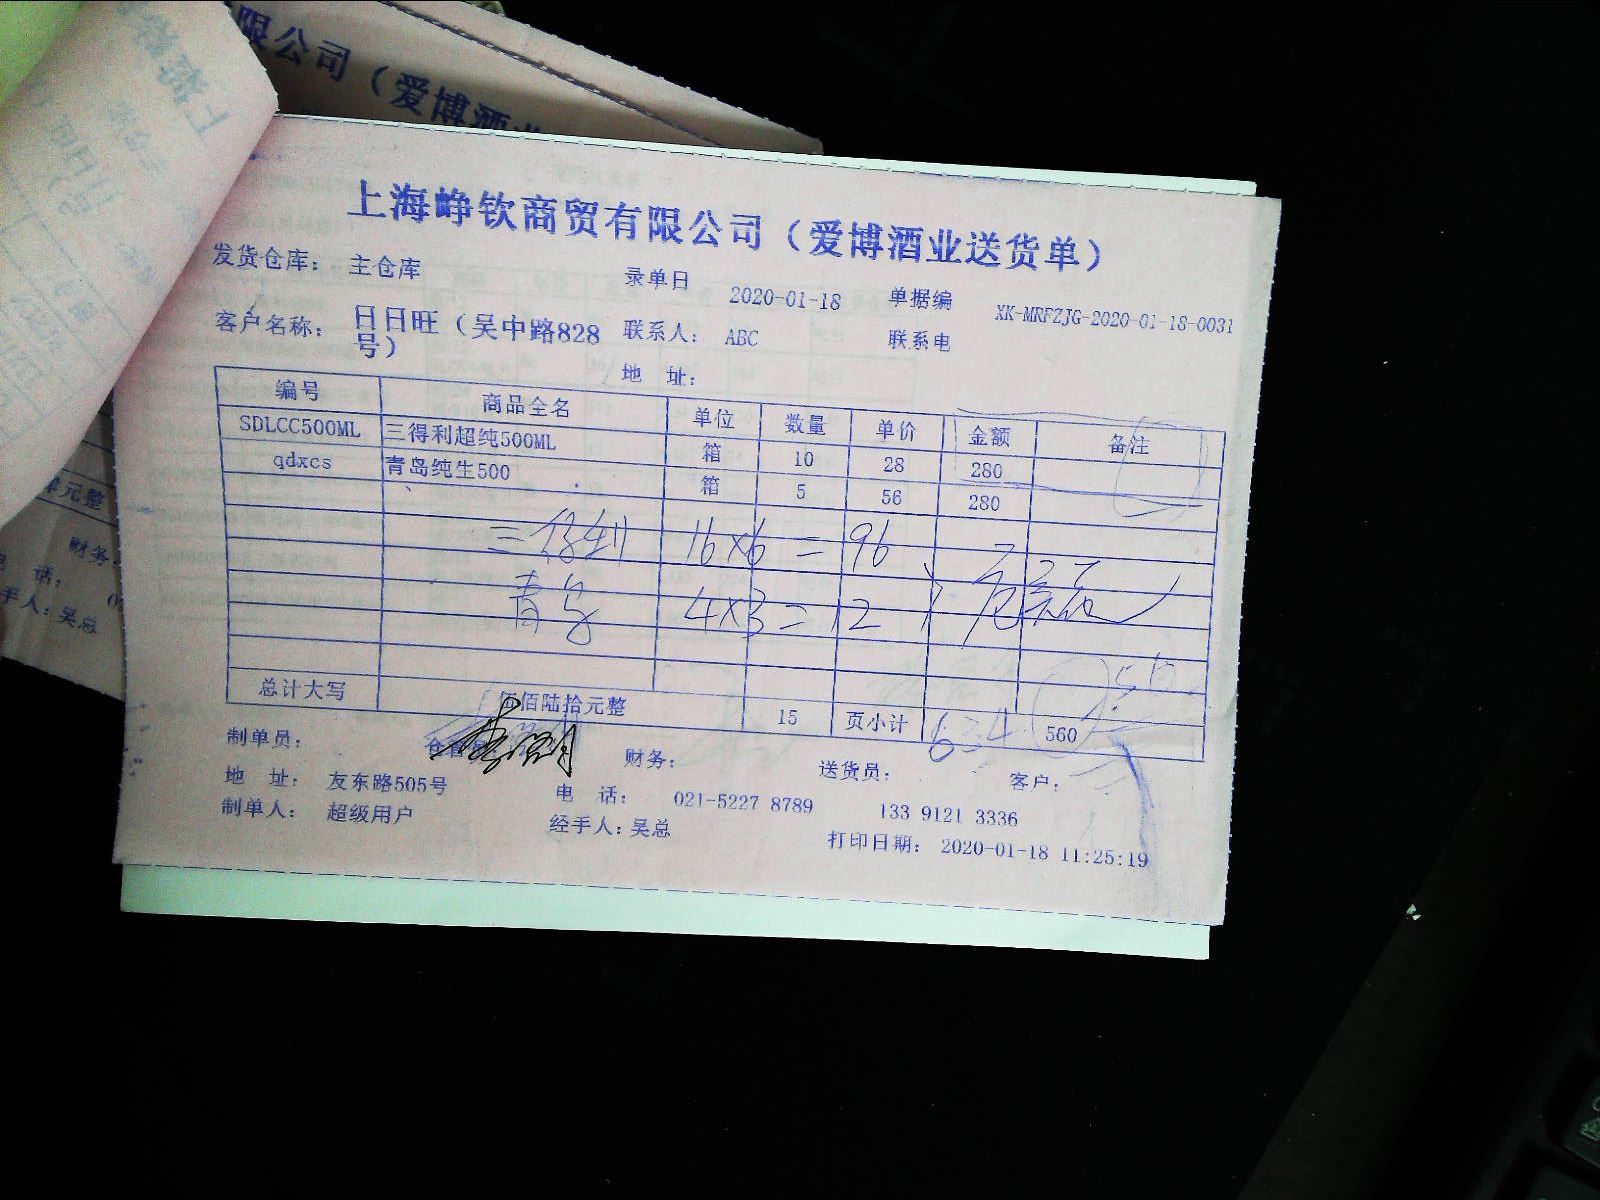 限公司（爱博酒业
上海峥钦商贸有限公司（爱博酒业送货单）
发货仓库： 主仓库 录单日 2020-01-18 单据编 XK-MRFZJG-2020-01-18-0031
客户名称： 日日旺（吴中路828号） 联系人： ABC 联系电
地 址：
编号 商品全名 单位 数量 单价 金额 备注
SDLCC500ML 三得利超纯500ML 箱 10 28 280
qdxcs 青岛纯生500 箱 5 56 280
三得利 16×6=96
青岛 4×3=12
总计大写 伍佰陆拾元整 15 页小计 634 560
制单员： 财务： 送货员： 客户：
地 址： 友东路505号 电 话： 021-5227 8789 133 9121 3336
制单人： 超级用户 经手人：吴总 打印日期： 2020-01-18 11:25:19
元整
财务：
话：
手人：吴总